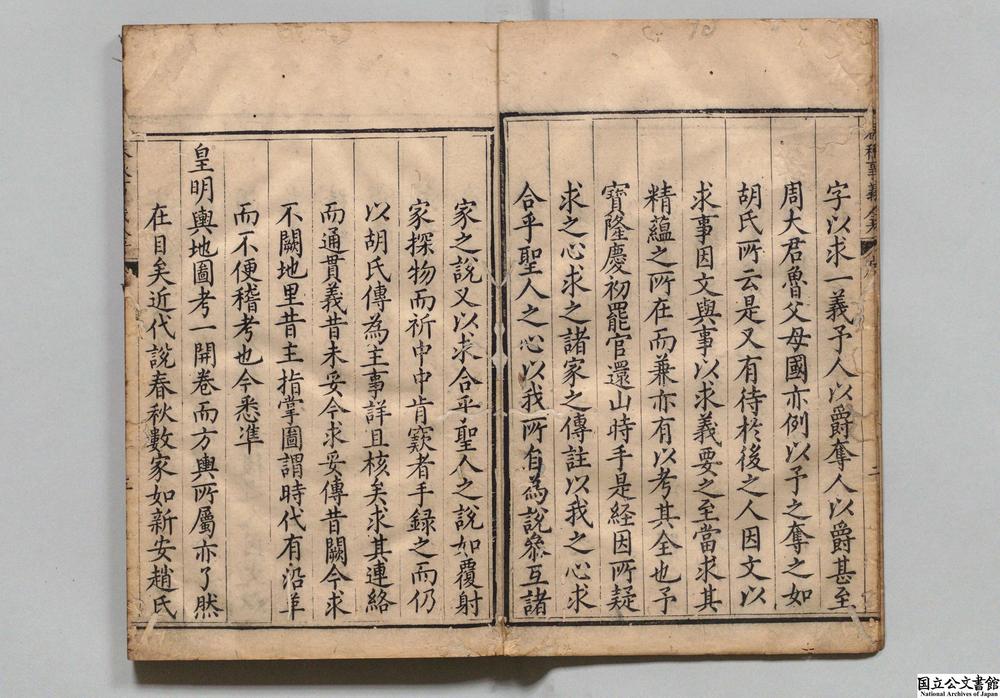 字以求一義予人以爵奪人以爵甚至
周大君魯父母國亦例以予之奪之如
胡氏所云是又有待於後之人因文以
求事因文與事以求義要之至當求其
精蘊之所在而兼亦有以考其全也予
寶隆慶初罷官還山時手是経因所疑
求之心求之諸家之傳註以我之心求
合乎聖人之心以我所自為說叅互諸
家之說又以求合乎聖人之說如覆射
家探物而祈中中肯窾者手録之而仍
以胡氏傳為主事詳且核矣求其連絡
而通貫義昔未妥今求妥傳昔闕今求
不闕地里昔主指掌圖謂時代有沿革
而不便稽考也今悉凖
皇明輿地圖考一開卷而方輿所屬亦了然
在目矣近代說春秋數家如新安趙氏
国立公文書館
National Archives of Japan